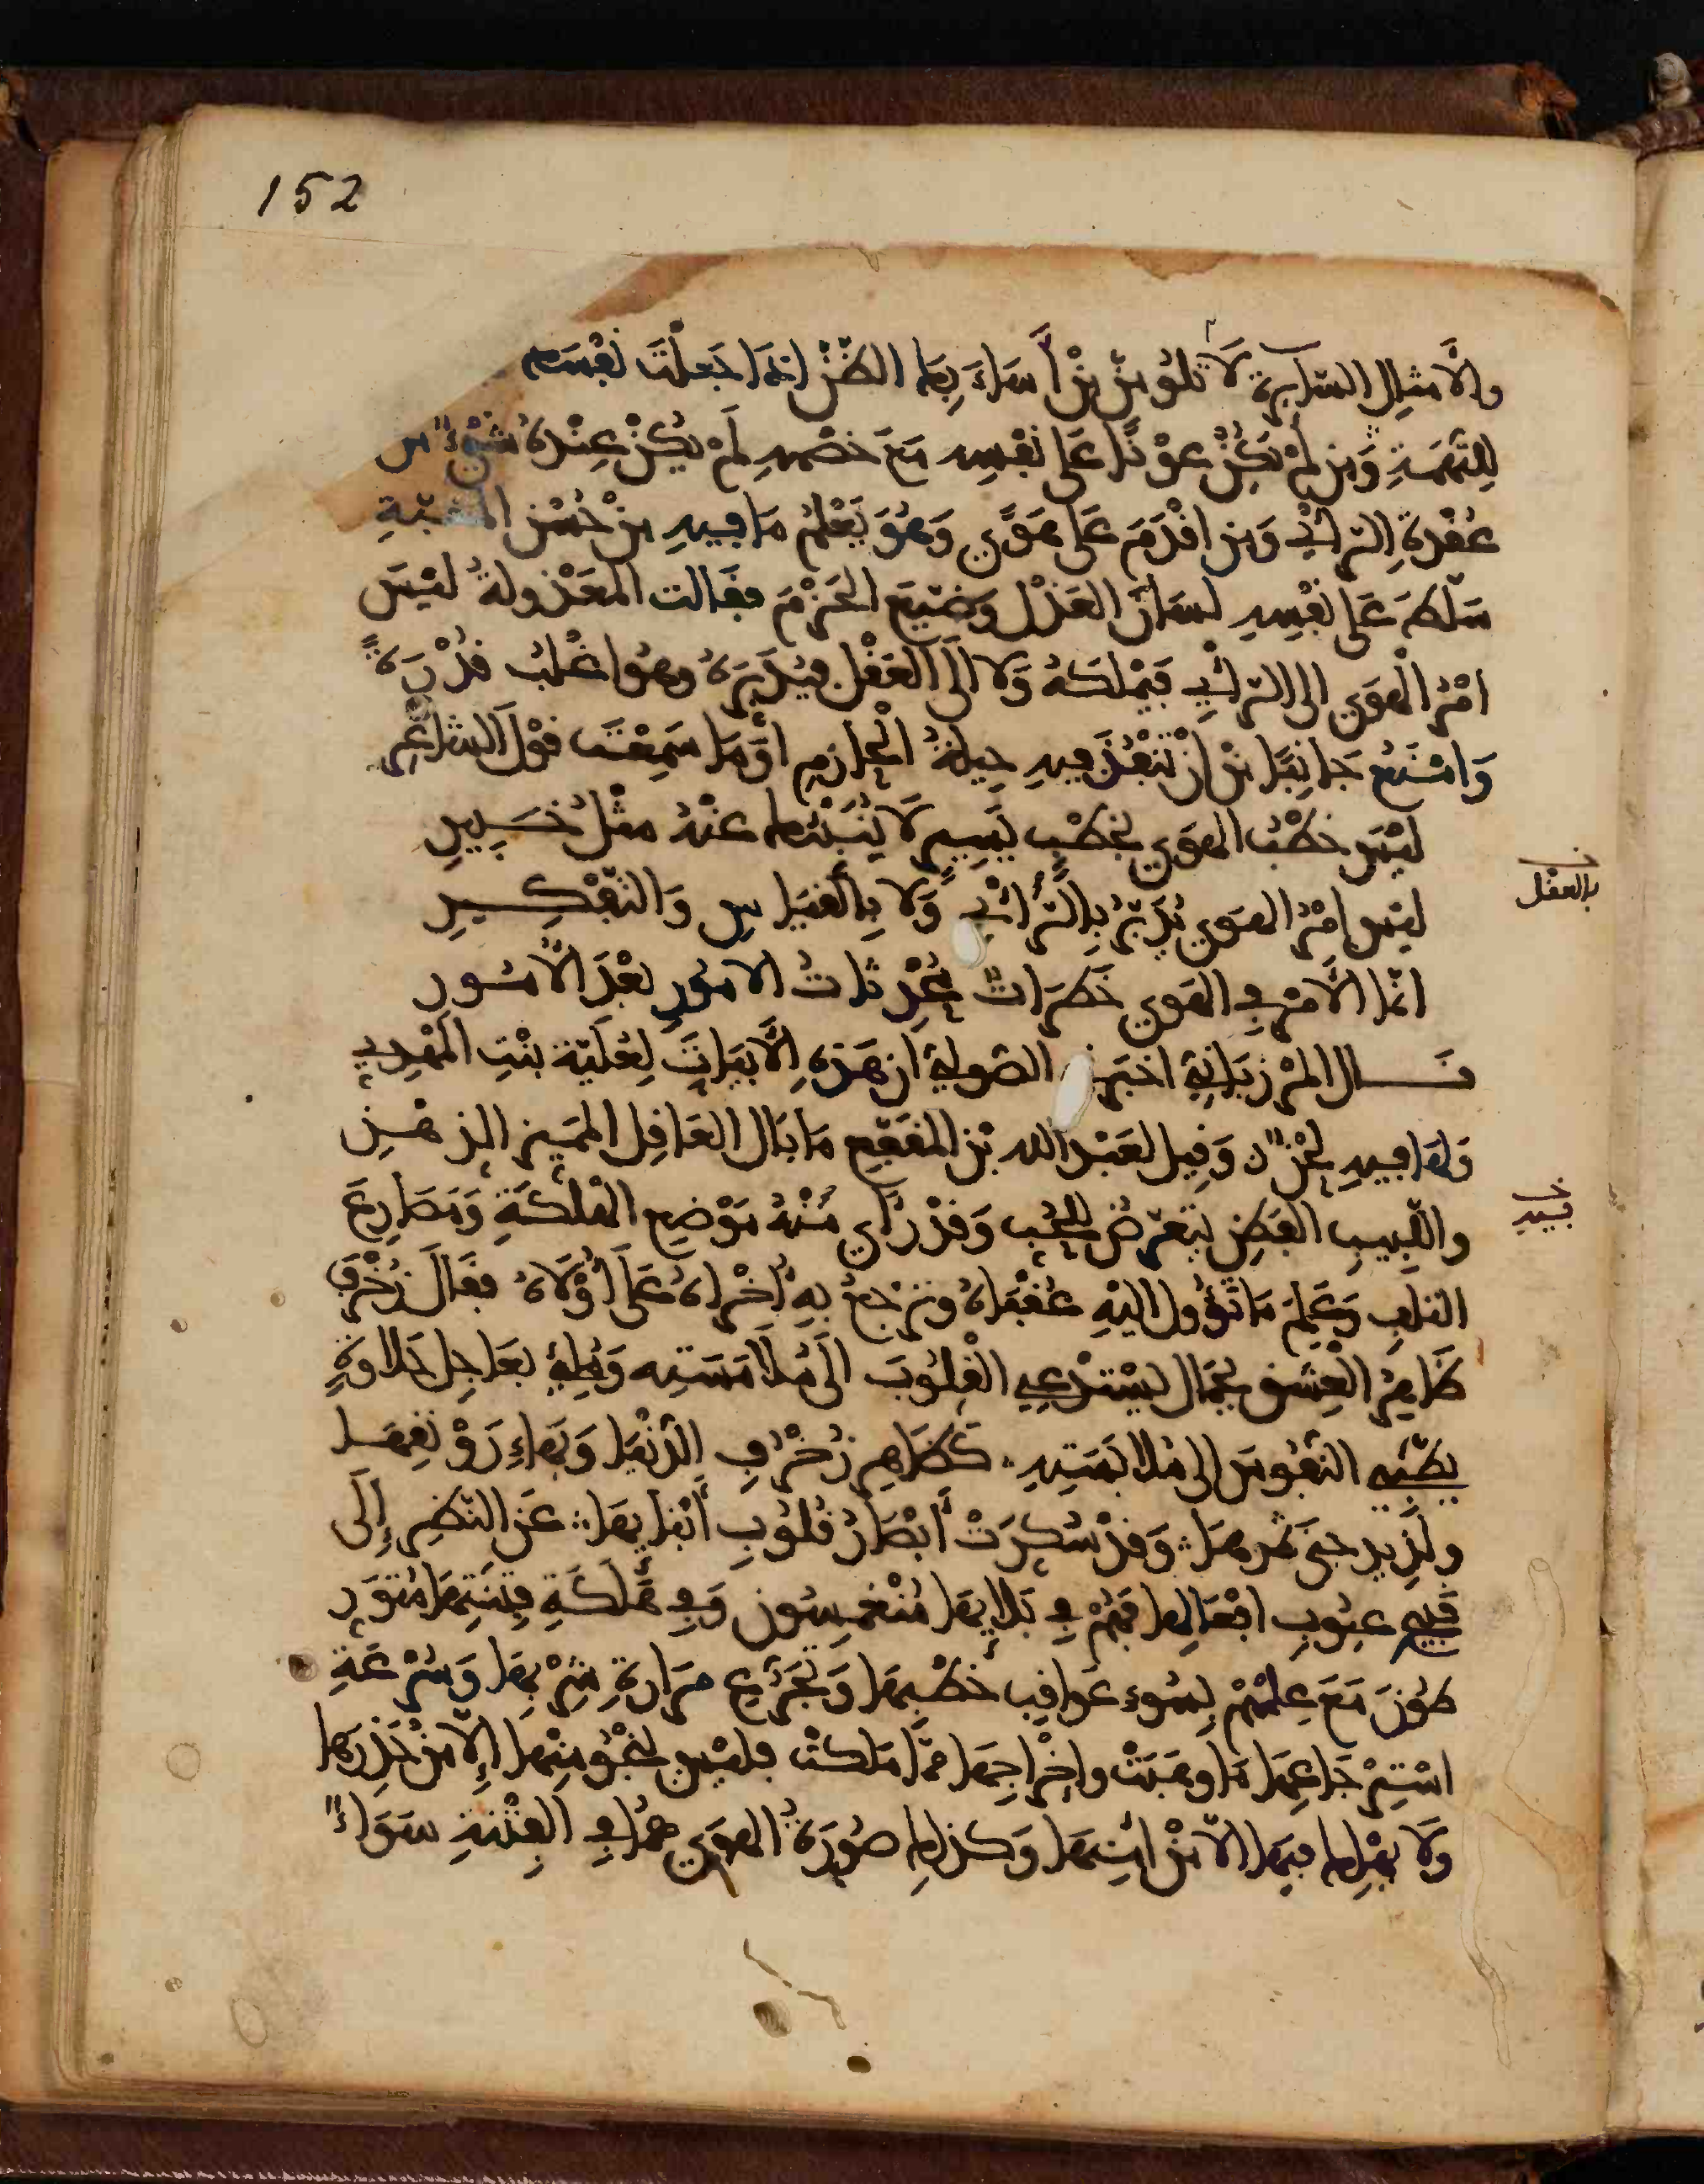 152
والأمثال السائرة لَا تلومنّ من أَسَاءَ بِكَ الظَّنَّ إذَا جَعلْتَ نَفْسَك
لِلتُّهَمَةِ وَمن لَمْ يَكُنْ عَوْنًا عَلَى نَفْسِهِ مَعَ خَصْمِهِ لَمْ يَكُنْ عِنْدَهُ شَيْءٌ من
عُقْدَةِ الرأْيِ وَمن اقْدَمَ عَلَى هَوًى وَهُوَ يَعْلَمُ مَا فِيهِ مِنْ
سَلَّطَ عَلَى نَفْسِهِ لسَانَ العَذْل وَضَيَّعَ الحَزْمَ فقَالت المعْذُولةُ لَيْسَ
امْرُ الْهَوَى الى الرأْيِ فَيَمْلكَهُ وَلا الَى العَقْل فَيُدَبِّرَهُ وهُوَ اغْلبُ قُدْرَةً
وَامْنَعُ جَانِبًا مْن انْ تَنْفُذَ فِيهِ حِيلةُ الْحَازِمِ اوَمَا سَمِعْتَ قوْلَ الشاعِر
لَيْسَ خطْبُ الهوَى بخَطْبٍ يَسِيرٍ لَا يُنَبِّئُكَ عنْهُ مثْلُ خَبِيرِ
ليْس امْرُ الهَوى يُدَبَّرُ بِالرَّأْيِ وَلَا بِالقِيَاسِ وَالتَّفْكِيرِ
بالعقل
انّما الأَمْر في الهَوى خَطَرَاتٌ مُحْدَثَاتُ الامُورِ بَعْدَ الأُمُورِ
قَال المرْزبَانِيّ اخبَرَنِي الصّوليّ ان هَذِهِ الأَبيَاتَ لِعُلَيّة بنْتِ المَهْدِي
وَلَهَا فِيهِ لَحْنٌ وَقِيل لعَبْد الله بْن المقَفّع مَا بَال العَاقِل المميّز الذهْنِ
واللّبِيبِ الفَطِن يتعَرّضُ للْحُبِ وَقدْ رَأَى مِنْهُ مَوْضِع الهلكَةِ وَمَصَارِعَ
فِيهِ
التلَفِ وَعَلِمَ مَا تَؤُول اليْه عُقْبَاهُ وترْجعُ بِهِ أُخْرَاهُ عَلَى أُوْلَاهُ فقَالَ زُخْرِفَ
ظَاهِرُ الْعِشقِ بجَمَالٍ يسْتَدْعِي القُلُوبَ الَى مُلَامَسَتِه وَحُلِيَ بعَاجِل حَلَاوَةٍ
يَطَّبِي النّفُوسَ الى مُلَابَسَتِهِ كَظَاهِر زُخْرُفِ الدنْيَا وَبَهَاءِ رَوْنقِهَا
ولَذِيذِ جنَى ثَمرِهَا وَقدْ سُكِرَتْ أَبْصَارُ قُلُوبِ أَبْنَايِهَا عَن النّظَر إِلَى
قَبِيحِ عيُوبِ افعَالِهَا فَهُمْ في بَلَايِهَا مُنْغَمِسُون وَفِي هَلَكَةِ فِتنَتِهَا مُتَوَرِ
طُونَ مَعَ عِلمهمْ بِسُوءِ عَوَاقِبِ خطْبِهَا وَتَجَرُّعِ مَرَارَةِ شِرْبِهَا وَسُرْعَةِ
اسْتِرْجَاعِهَا مَا وهَبَتْ وإخْرَاجِهَا ممَّا مَلكَتْ فليْس ينْجُو مِنْهَا إِلَّا مَنْ حَذِرَهَا
وَلَا يَهْلِك فِيهَا الَّا مَنْ امِنهَا وَكذلِك صُورَةُ الهوَى هُمَا فِي الفِتْنَةِ سَوَاءٌ